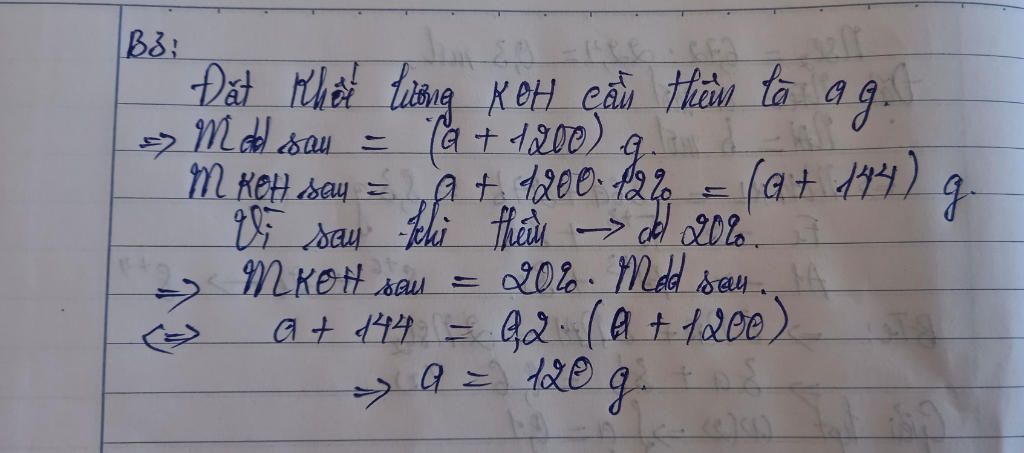 B3:
Đặt khối lượng KOH cần thêm là a g.
=> mdd sau = (a + 1200) g.
mKOH sau = a + 1200.12% = (a + 144) g.
Vì sau khi thêm → dd 20%.
=> mKOH sau = 20%. mdd sau.
<=> a + 144 = 0,2.(a + 1200)
=> a = 120 g.